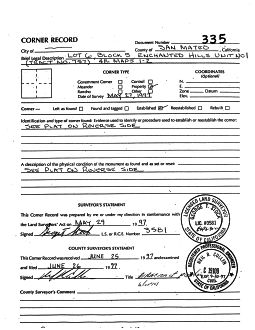 CORNER RECORD
Document Number 335
City of
County of SAN MATEO, California
Brief Legal Description LOT 6 BLOCK 5 ENCHANTED HILLS UNIT NO 1
(TRACT NO. 757) 48 MAPS 1-2
CORNER TYPE
COORDINATES
(Optional)
Government Corner Control
Meander Property
Rancho Other
Date of Survey MAY 27, 1997
N.
E.
Zone Datum
Elev.
Corner — Left as found Found and tagged Established Reestablished Rebuilt
Identification and type of corner found: Evidence used to identify or procedure used to establish or reestablish the corner:
SEE PLAT ON REVERSE SIDE
A description of the physical condition of the monument as found and as set or reset
SEE PLAT ON REVERSE SIDE
SURVEYOR'S STATEMENT
This Corner Record was prepared by me or under my direction in conformance with
the Land Surveyors' Act on MAY 29 1997
Signed L.S. or R.C.E. Number 3581
COUNTY SURVEYOR'S STATEMENT
This Corner Record was received JUNE 25 1997 and examined
and filed JUNE 26 1997
Signed Title
County Surveyor's Comment